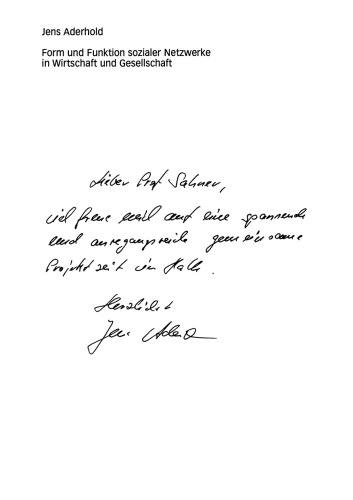 Jens Aderhold
Form und Funktion sozialer Netzwerke
in Wirtschaft und Gesellschaft
Lieber Prof Sahner,
ich freue mich auf eine spannende
und anregungsreiche gemeinsame
Projektzeit in Halle.
Herzlichst
Jens Aderhold